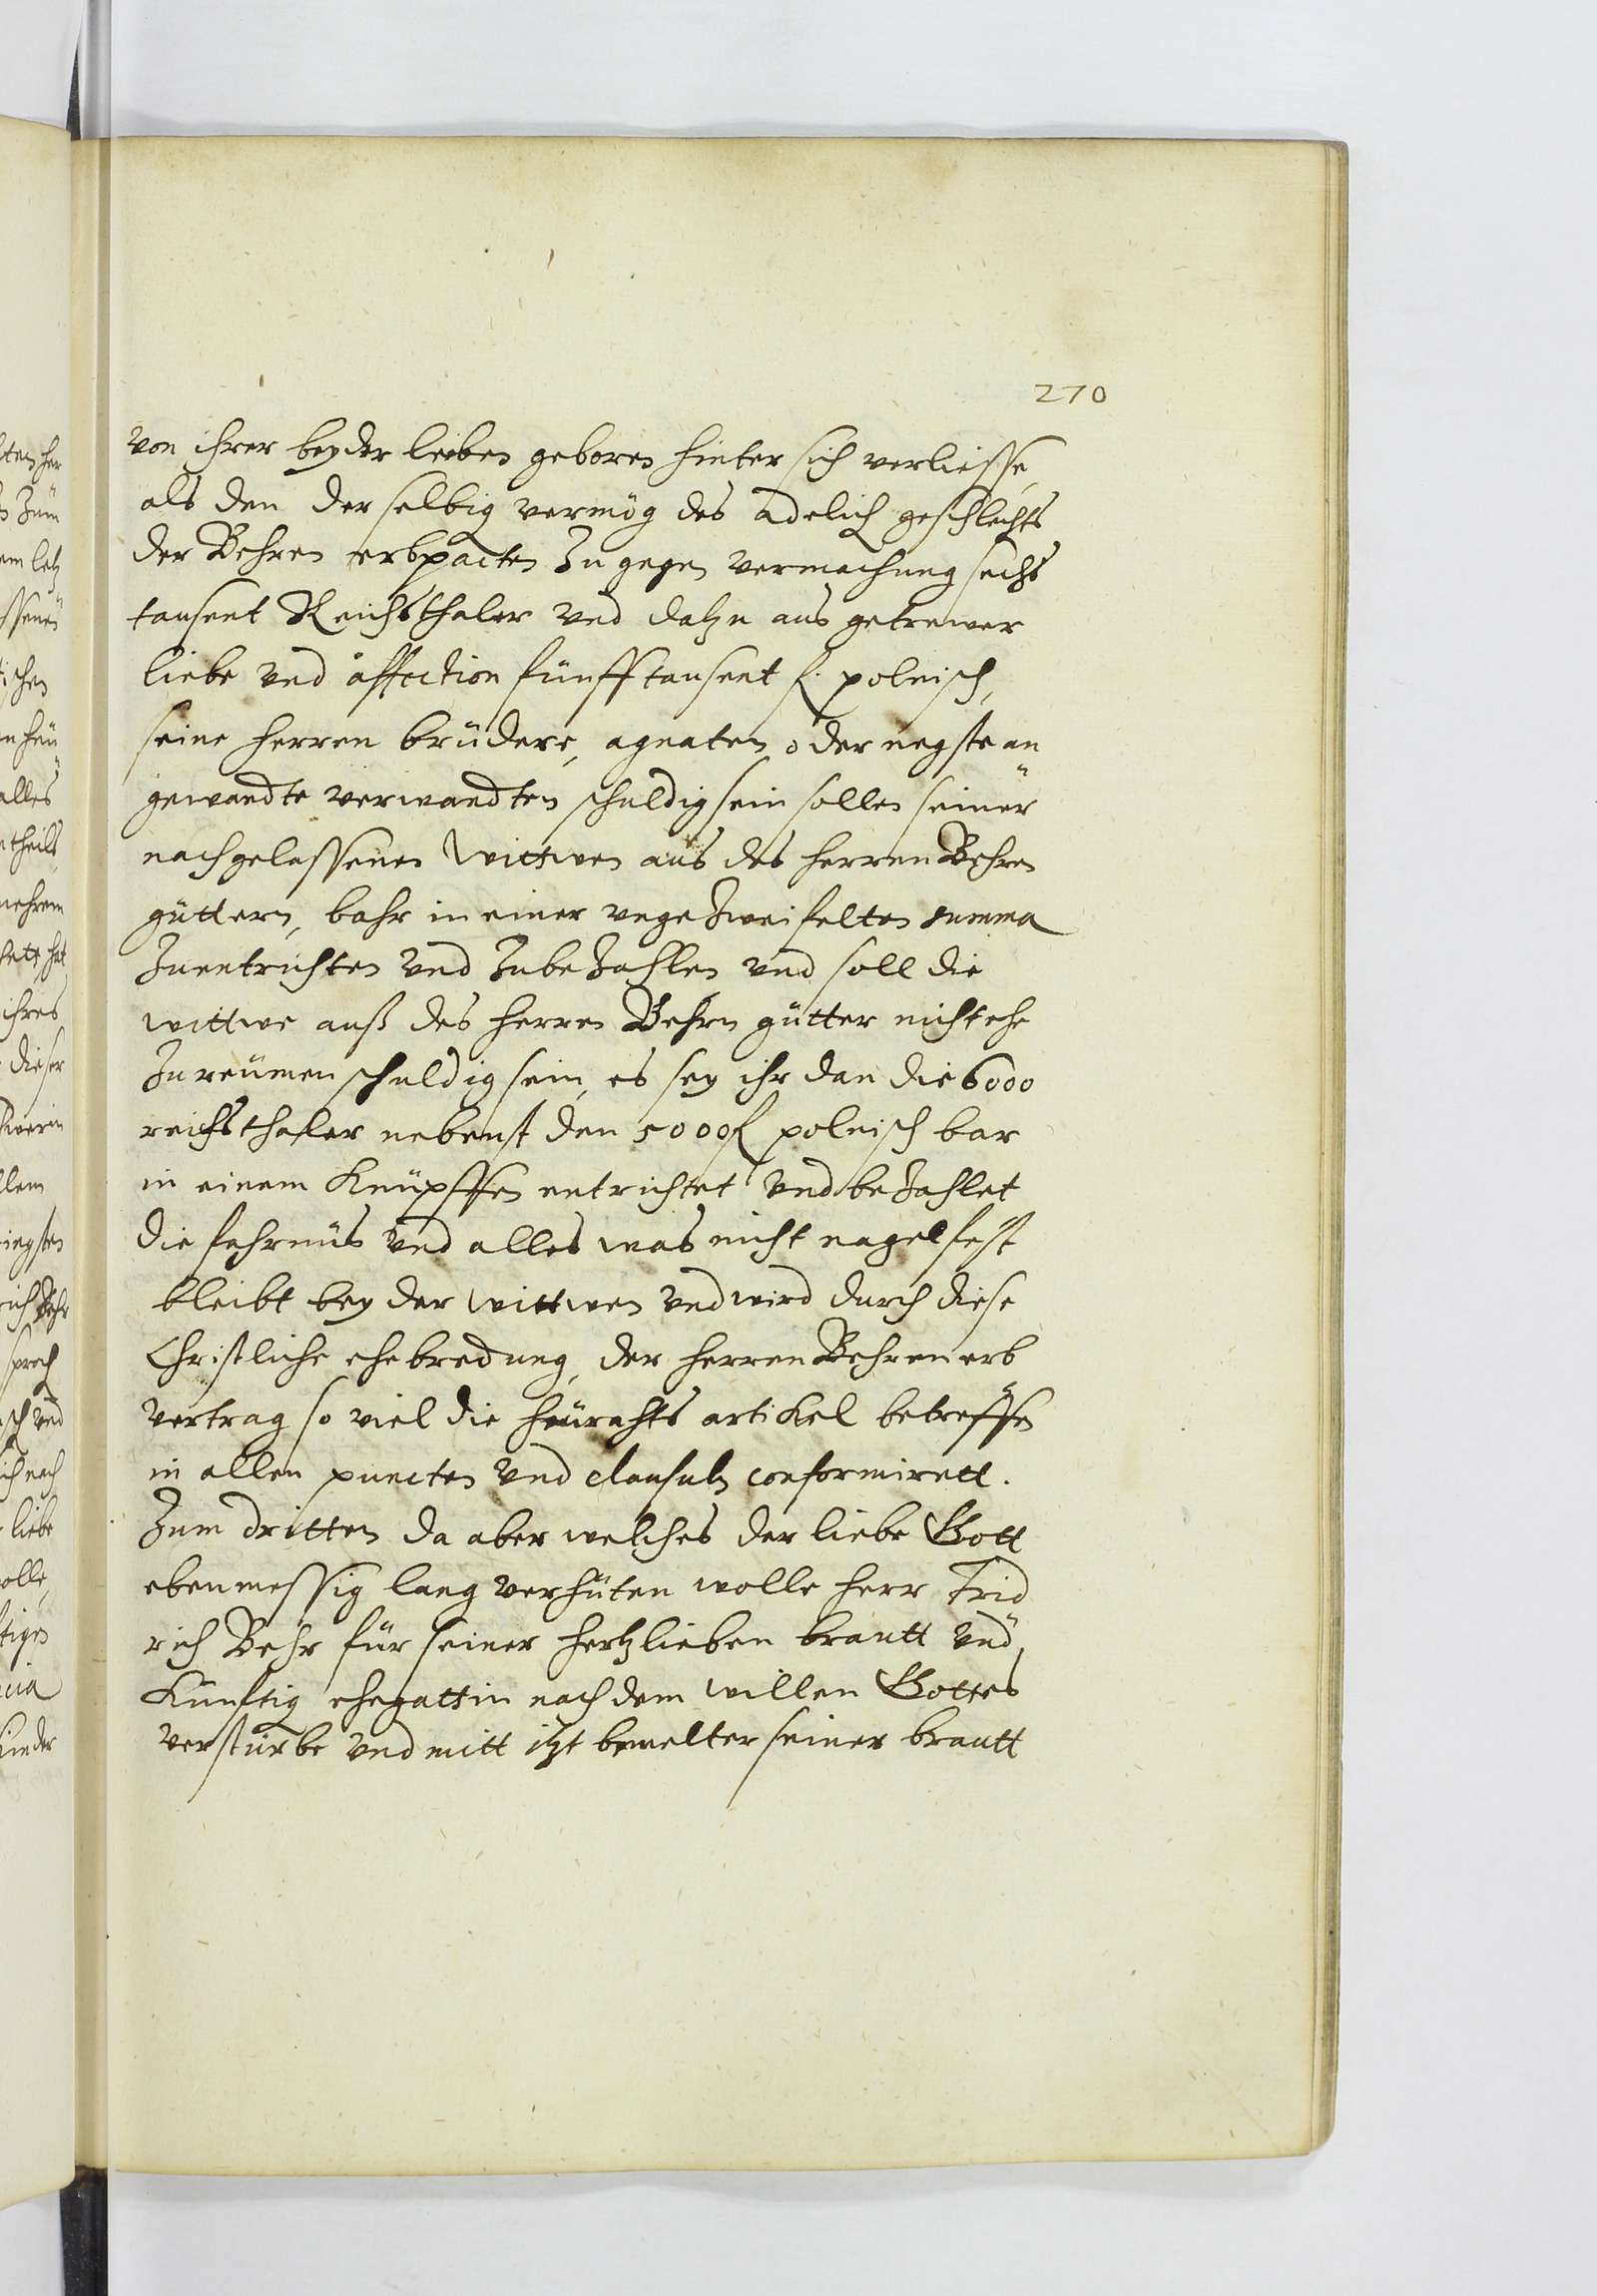 270
von ihrer beyder leiben geboren hinter sich verliesse,
als den der selbig vermög des adelich geschlechts
der Behren erbpacten Zu gegen vermachung sechs
tausent Reichsthaler vnd datzu aus getrewer
liebe vnd affection fünfftausent fl. polnisch,
seine herren brüdere, agnaten oder negste an
gewandte verwandten schuldig sein sollen seiner
nachgelassenen Wittwen aus des herren Behren
güttern, bahr in einer vngezweifelten summa
Zuentrichten vnd Zubezahlen vnd soll die
wittwe auß des herren Behrn gütter nicht ehe
Zu reümen schuldig sein, es sey ihr dan die 6000
reichsthaler nebenst den 5000 fl polnisch bar
in einem Knüpffen entrichtet vnd bezahlet
die fahrnüs vnd alles was nicht nagelfest
bleibt bey der Wittwen vnd wird durch diese
Christliche ehebredung, der herren Behren erb
vertrag so viel die heürahts artikel betreffen
in allen puncten vnd clausuln conformirett.
Zum dritten da aber welches der liebe Gott
ebenmessig lang verhüten wolle herr Frid
rich Behr für seiner hertzlieben brautt vnd
Künftig ehegattin nach dem willen Gottes
verstürbe vnd mitt itzt bemelter seiner brautt